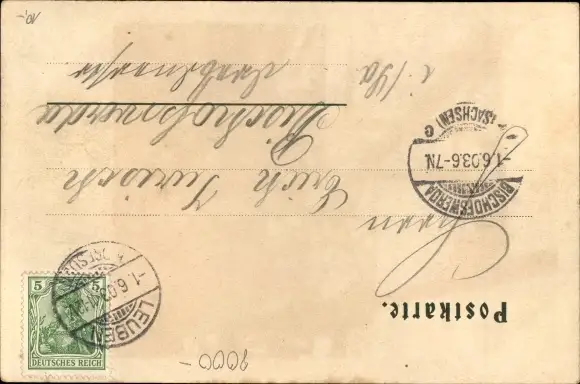 Postkarte.
Herrn
Erich Jurisch
Bischofswerda
i/Sa
BISCHOFSWERDA
-1.6.03.6-7N.
(SACHSEN) C
LEUBEN
-1.6.03
5 5
DEUTSCHES REICH
9000-
10,-